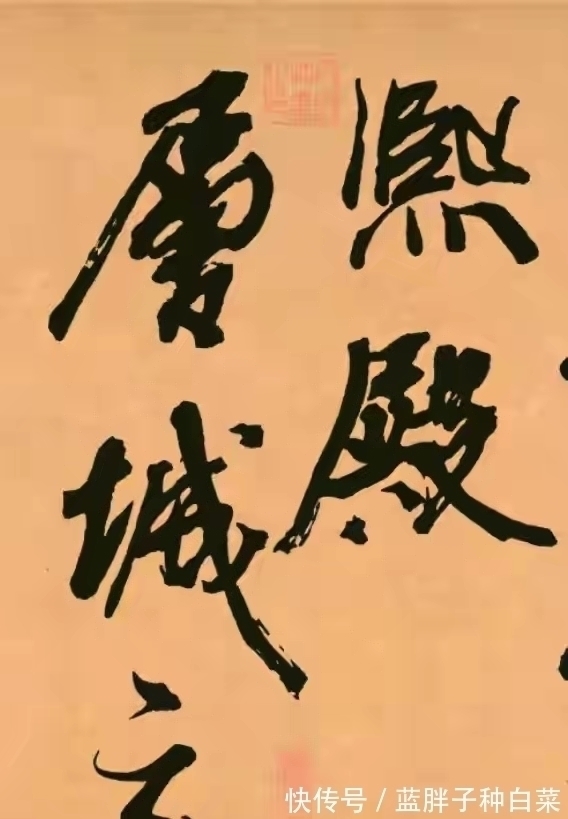 熙殿
層城
快传号 / 蓝胖子种白菜